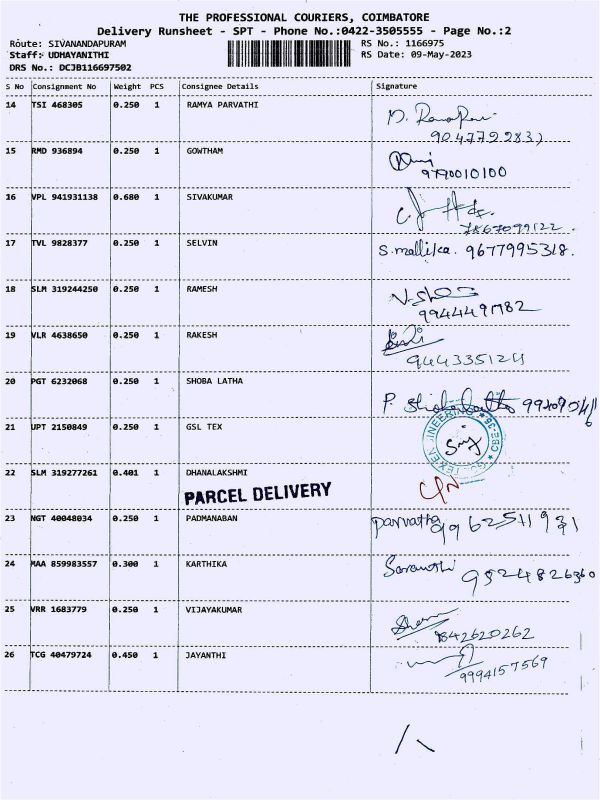 THE PROFESSIONAL COURIERS, COIMBATORE
Delivery Runsheet - SPT - Phone No.:0422-3505555 - Page No.:2
Route: SIVANANDAPURAM RS No.: 1166975
Staff: UDHAYANITHI RS Date: 09-May-2023
DRS No.: DCJB116697502
S No Consignment No Weight PCS Consignee Details Signature
14 TSI 468305 0.250 1 RAMYA PARVATHI
15 RMD 936894 0.250 1 GOWTHAM
9790010100
16 VPL 941931138 0.680 1 SIVAKUMAR
7867099122
17 TVL 9828377 0.250 1 SELVIN S. mallika. 9677995318.
18 SLM 319244250 0.250 1 RAMESH
9944491782
19 VLR 4638650 0.250 1 RAKESH
9443351211
20 PGT 6232068 0.250 1 SHOBA LATHA
21 UPT 2150849 0.250 1 GSL TEX
22 SLM 319277261 0.401 1 DHANALAKSHMI
PARCEL DELIVERY
23 NGT 40048034 0.250 1 PADMANABAN Parvatha 9962511931
24 MAA 859983557 0.300 1 KARTHIKA Saranthi 9524826360
25 VRR 1683779 0.250 1 VIJAYAKUMAR
9842620262
26 TCG 40479724 0.450 1 JAYANTHI
9994157569